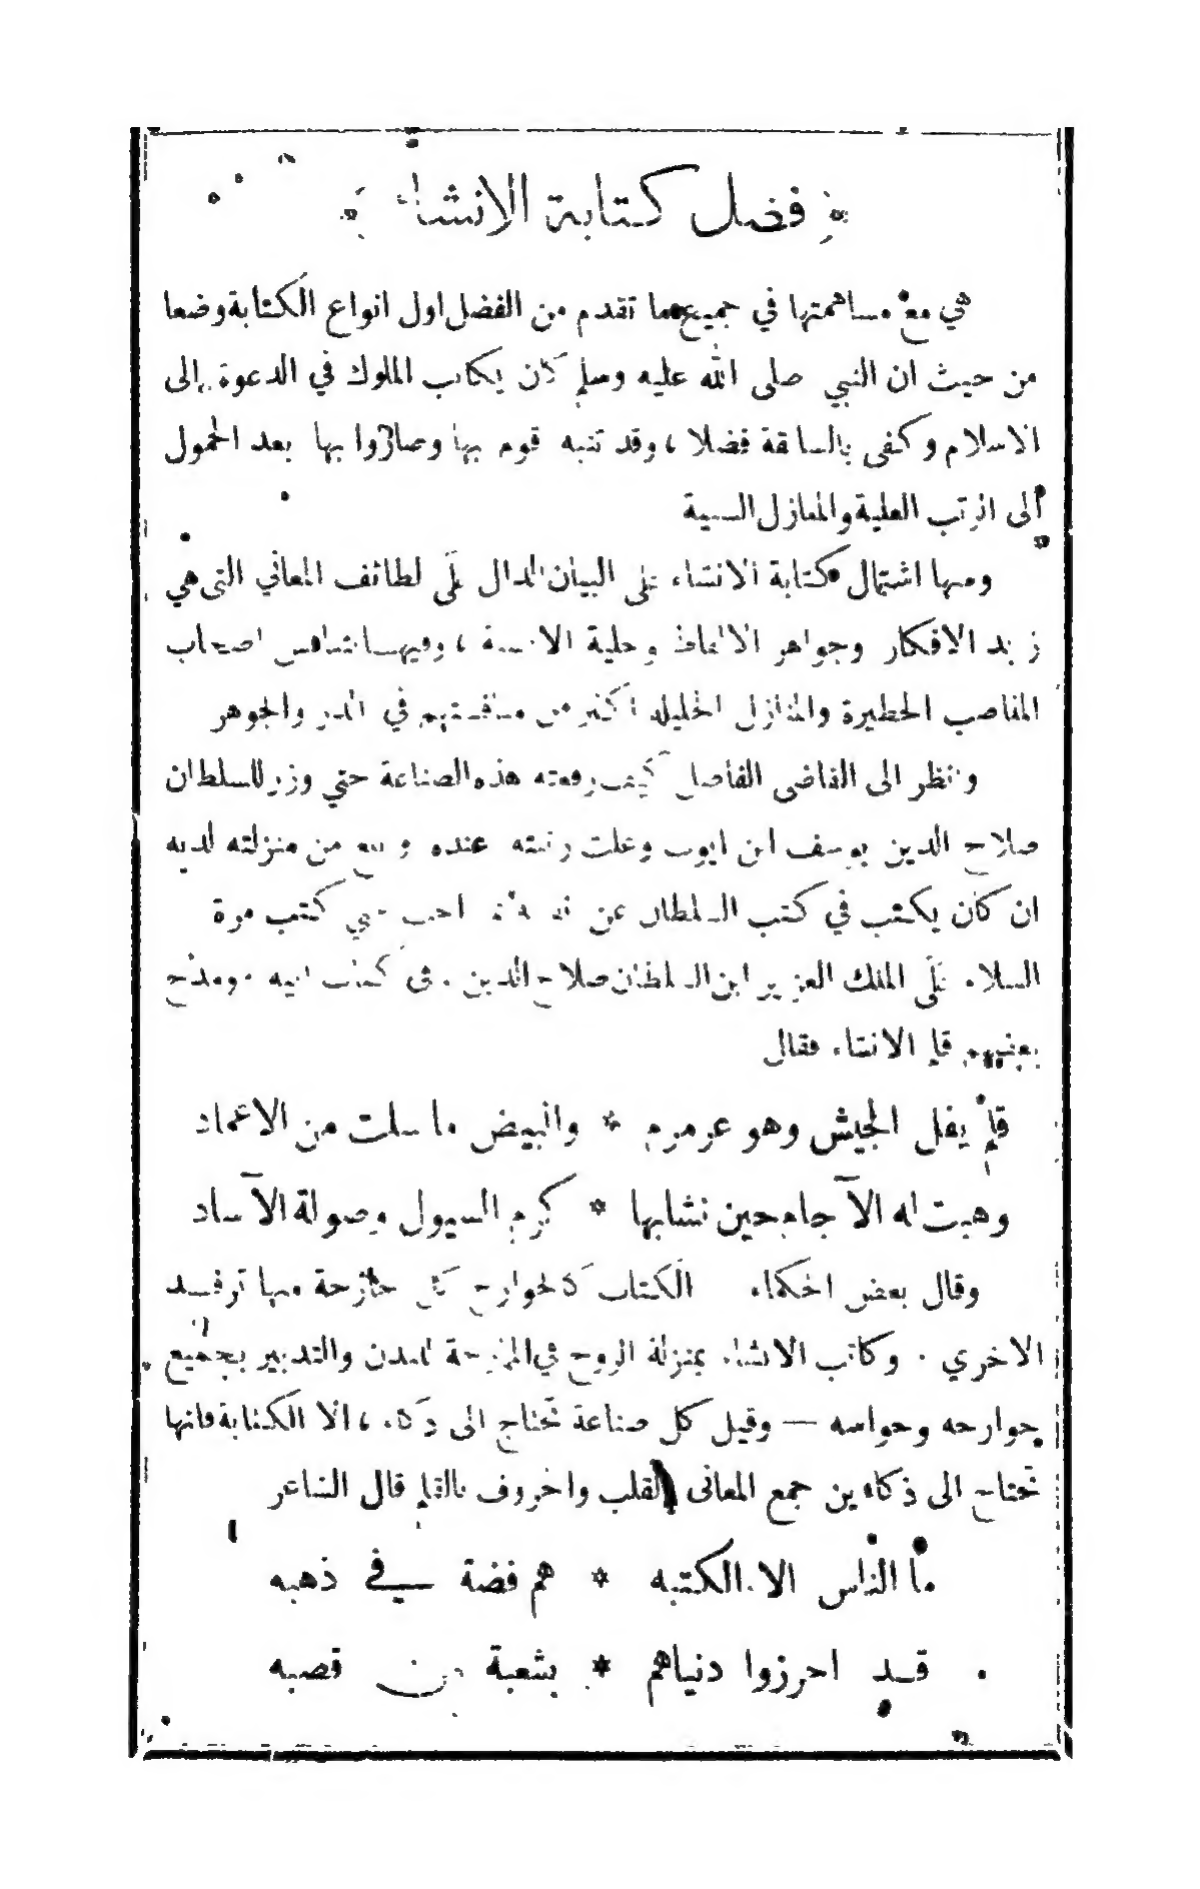 فضل كتابة الانشاء
هي مع مساهمتها في جميع ما تقدم من الفضل اول انواع الكتابة وضعا
من حيث ان النبي صلى الله عليه وسلم كان يكاتب الملوك في الدعوة الى
الاسلام وكفى بالسابقة فضلا ، وقد تنبه قوم بها وصاروا بها بعد الخمول
الى الرتب العلية والمنازل السنية
ومنها اشتمال كتابة الانشاء على البيان الدال على لطائف المعاني التى هي
زبد الافكار وجواهر الالفاظ وحلية الالسنة ، وفيها يتنافس اصحاب
المناصب الخطيرة والمنازل الجليلة اكثر من منافستهم في الدر والجوهر
وانظر الى القاضى الفاضل كيف رفعته هذه الصناعة حتي وزر للسلطان
صلاح الدين يوسف ابن ايوب وعلت رتبته عنده و من منزلته لديه
ان كان يكتب في كتب السلطان عن احب كتب مرة
السلام على الملك العزيز ابن السلطان صلاح الدين في كتاب ابيه ومدح
بعضهم قلم الانشاء فقال
قلم يفل الجيش وهو عرمرم * والبيض ما سلت من الاغماد
وهبت له الآجام حين نشابها * كرم السيول وصولة الآساد
وقال بعض الحكماء الكتاب كالجوارح كل جارحة منها ترفد
الاخري . وكاتب الانشاء بمنزلة الروح في الممازجة للبدن والتدبير بجميع
جوارحه وحواسه — وقيل كل صناعة تحتاج الى ذكاء ، الا الكتابة فانها
تحتاج الى ذكاءين جمع المعانى بالقلب والحروف بالقلم قال الشاعر
ما الناس الا الكتبه * هم فضة في ذهبه
قد احرزوا دنياهم * بشعبة من قصبه